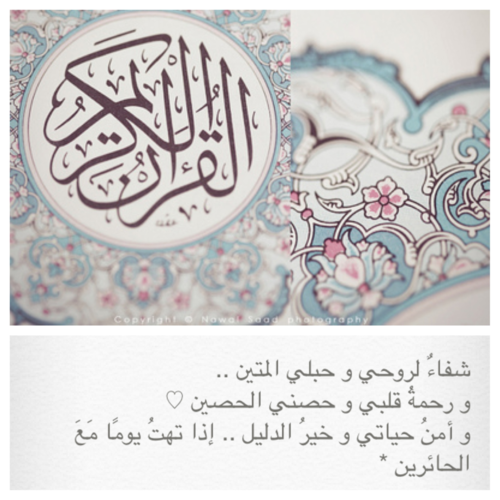 القرآن الكريم
Copyright © Nawal Saad photography
شفاءٌ لروحي و حبلي المتين ..
و رحمةُ قلبي و حصني الحصين ♡
و أمنُ حياتي و خيرُ الدليل .. إذا تهتُ يومًا مَعَ
الحائرين *